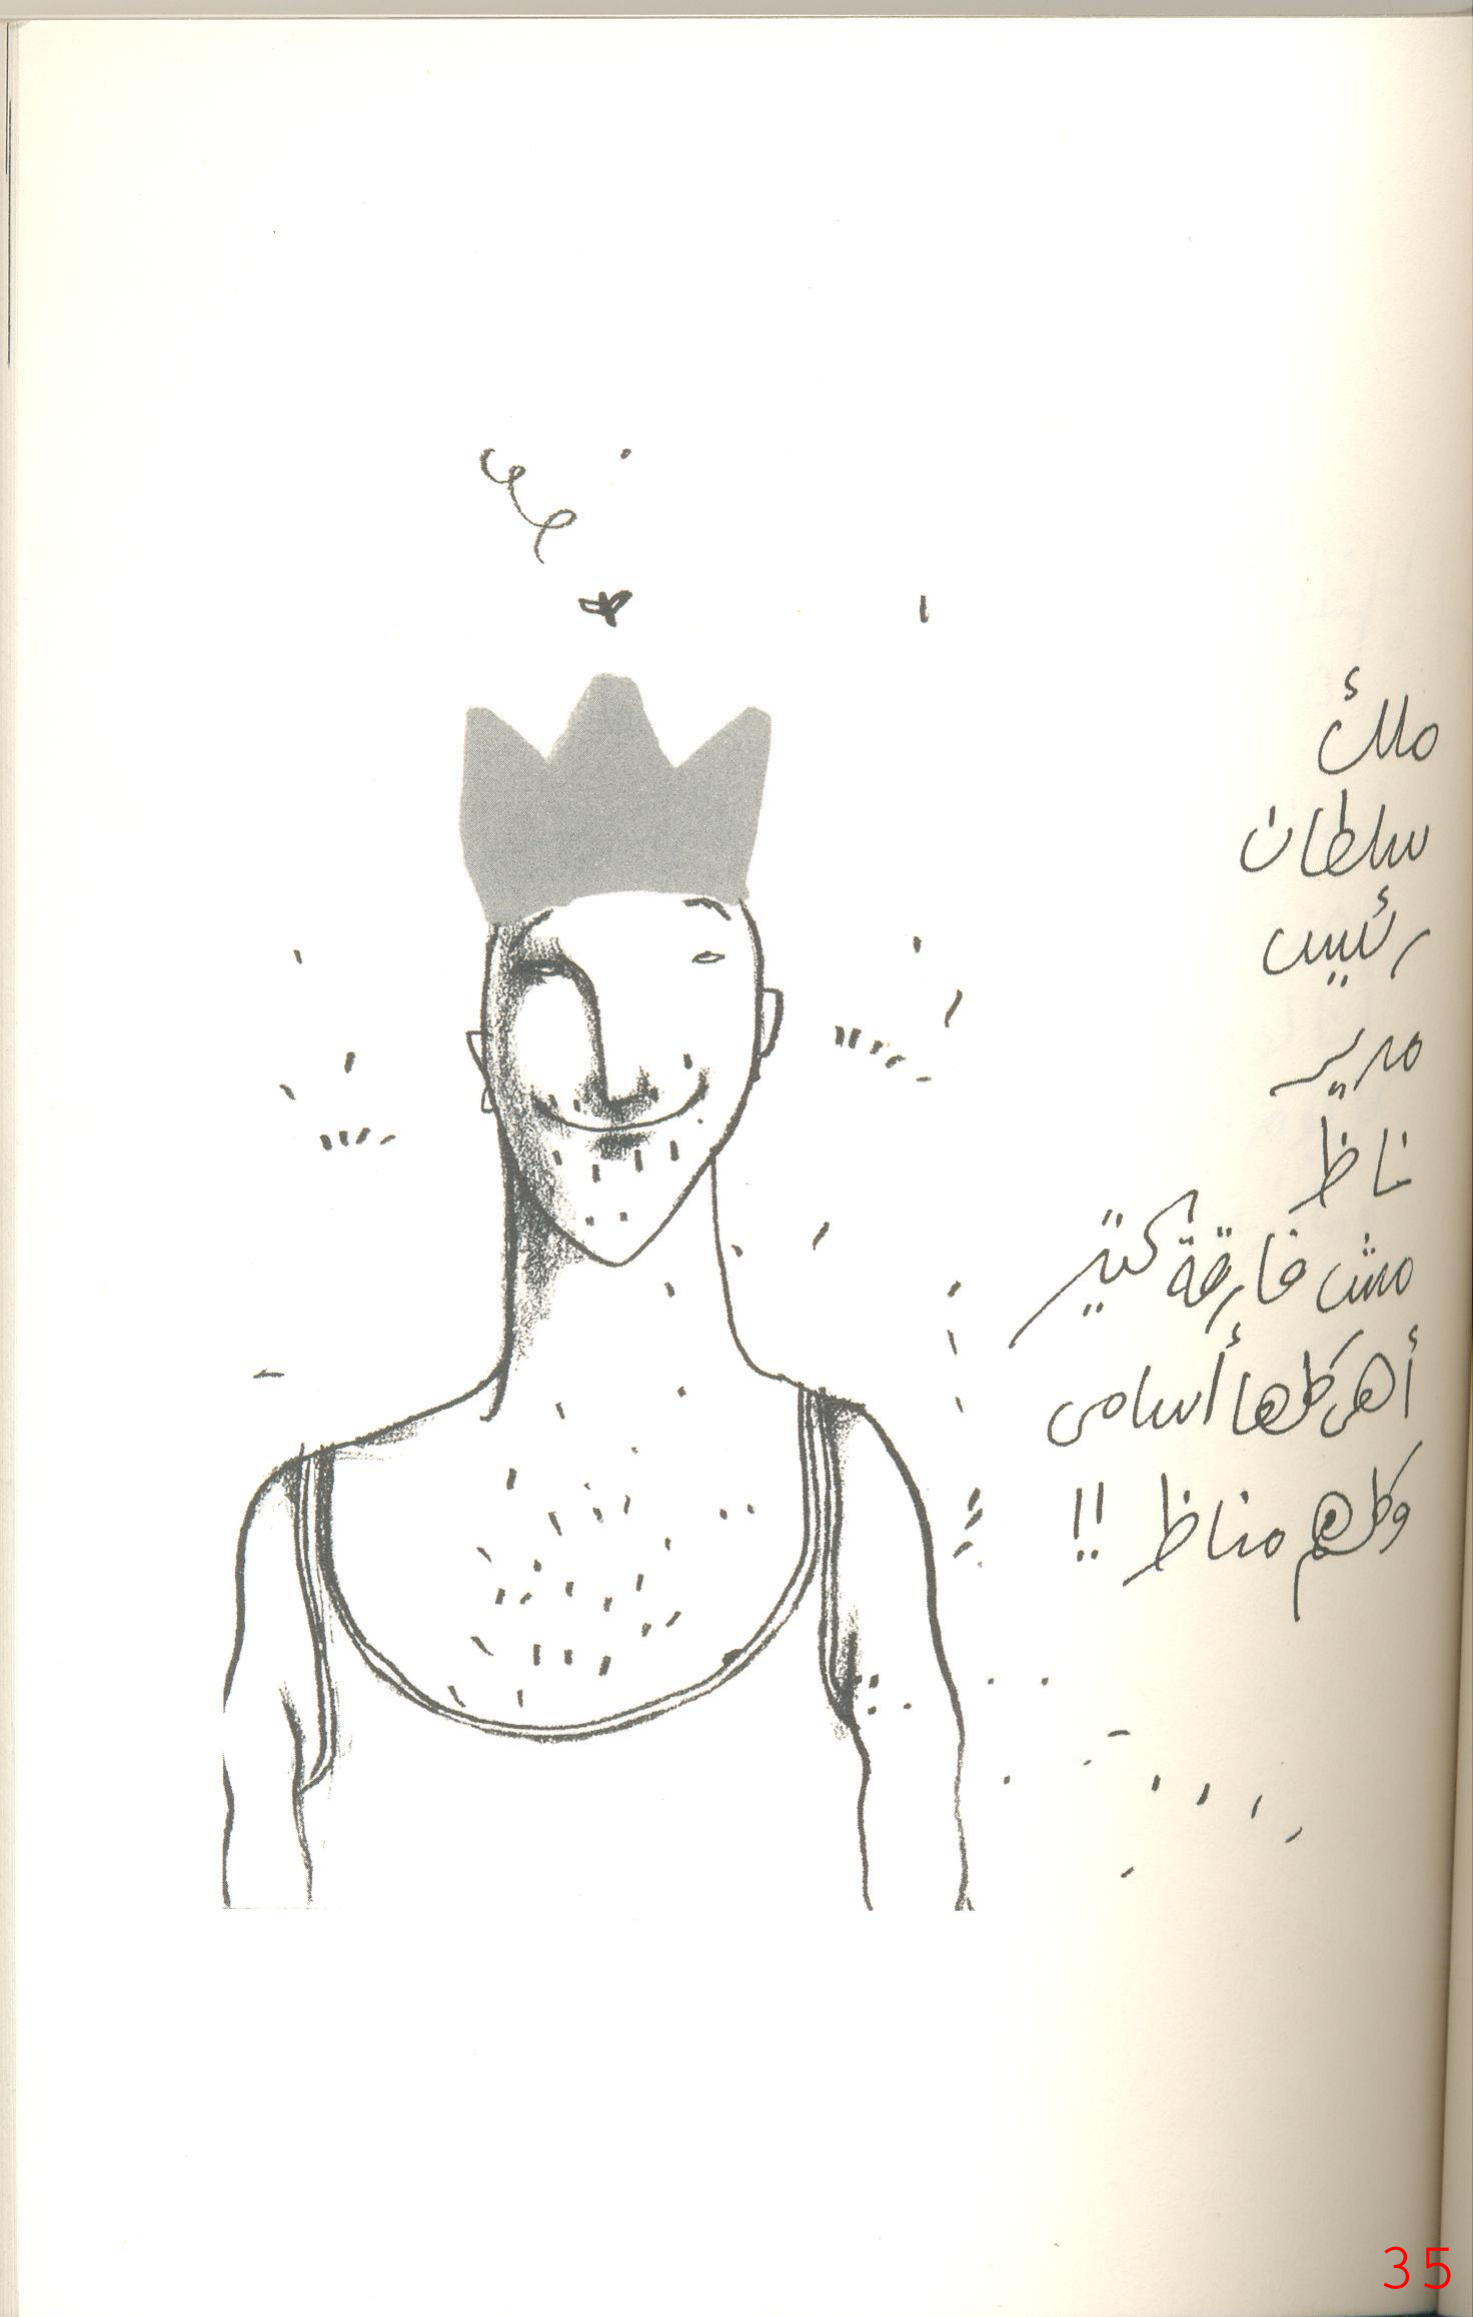 ملك
سلطان
رئيس
مدير
ناظر
مش فارقة كتير
أهى كلها أسامى
وكلهم مناظر !!
35